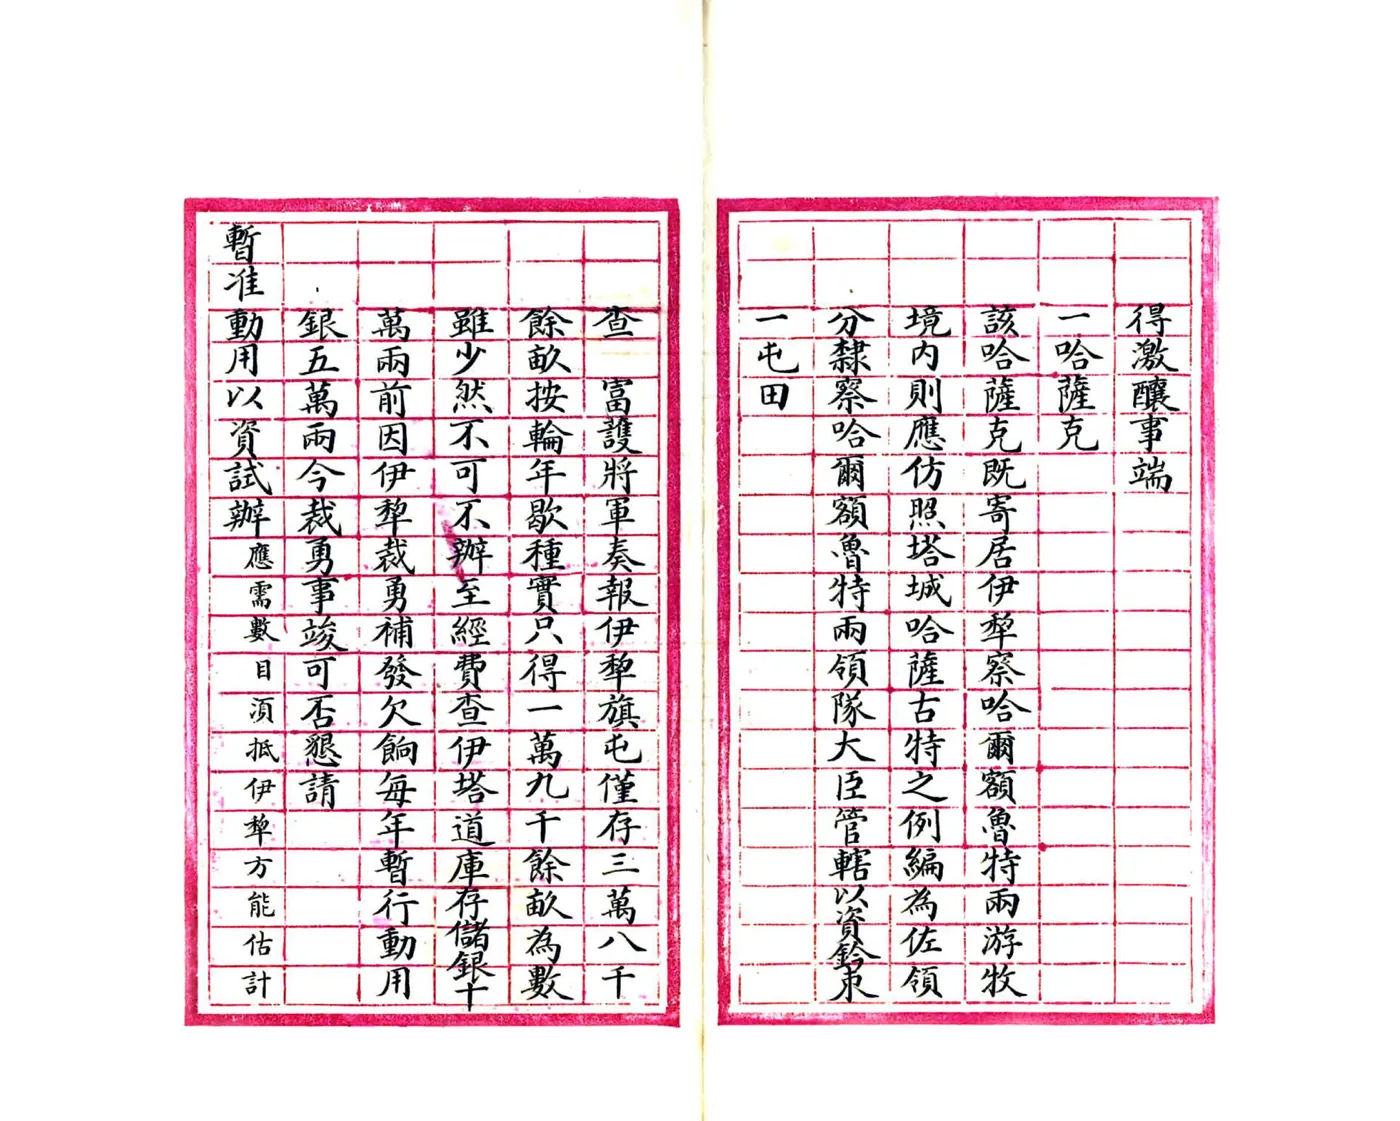 得激釀事端
一哈薩克
該哈薩克既寄居伊犂察哈爾額魯特兩游牧
境内則應仿照塔城哈薩古特之例編為佐領
分隸察哈爾額魯特兩領隊大臣管轄以資鈐束
一屯田
查　富護將軍奏報伊犂旗屯僅存三萬八千
餘畝按輪年歇種實只得一萬九千餘畝為數
雖少然不可不辦至經費查伊塔道庫存儲銀十
萬兩前因伊犂裁勇補發欠餉每年暫行動用
銀五萬兩今裁勇事竣可否懇請
暫准動用以資試辦應需數目須抵伊犂方能估計